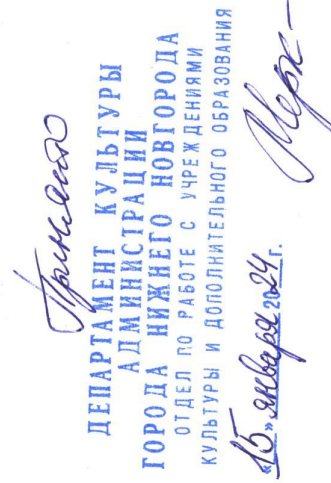 Принято
ДЕПАРТАМЕНТ КУЛЬТУРЫ
АДМИНИСТРАЦИИ
ГОРОДА НИЖНЕГО НОВГОРОДА
ОТДЕЛ ПО РАБОТЕ С УЧРЕЖДЕНИЯМИ
КУЛЬТУРЫ И ДОПОЛНИТЕЛЬНОГО ОБРАЗОВАНИЯ
«15» января 2024 г.